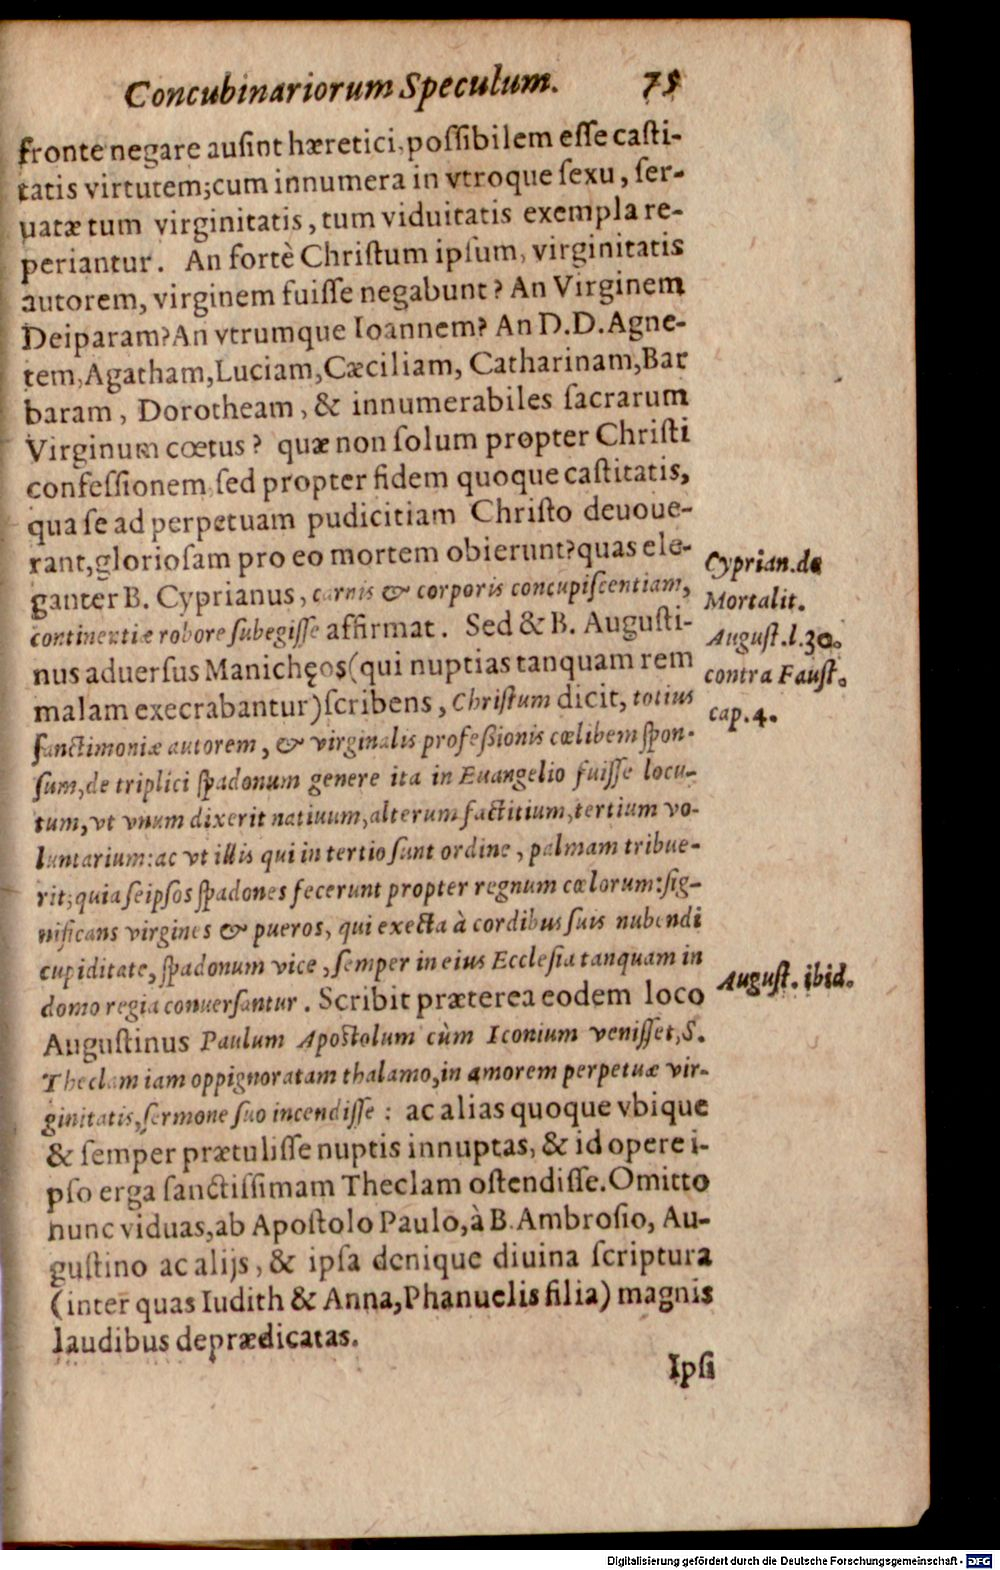 Concubinariorum Speculum. 75
fronte negare ausint hæretici, possibilem esse casti-
tatis virtutem; cum innumera in vtroque sexu, ser-
uatæ tum virginitatis, tum viduitatis exempla re-
periantur. An fortè Christum ipsum, virginitatis
autorem, virginem fuisse negabunt? An Virginem
Deiparam? An vtrumque Ioannem? An D.D. Agne-
tem, Agatham, Luciam, Cæciliam, Catharinam, Bar
baram, Dorotheam, & innumerabiles sacrarum
Virginum cœtus? quæ non solum propter Christi
confessionem, sed propter fidem quoque castitatis,
qua se ad perpetuam pudicitiam Christo deuoue-
rant, gloriosam pro eo mortem obierunt? quas ele-
ganter B. Cyprianus, carnis & corporis concupiscentiam,
continentiæ robore subegisse affirmat. Sed & B. Augusti-
nus aduersus Manichęos (qui nuptias tanquam rem
malam execrabantur) scribens, Christum dicit, totius
sanctimoniæ autorem, & virginalis professionis cœlibem spon-
sum, de triplici spadonum genere ita in Euangelio fuisse locu-
tum, vt vnum dixerit natiuum, alterum factitium, tertium vo-
luntarium: ac vt illis qui in tertio sunt ordine, palmam tribue-
rit; quia seipsos spadones fecerunt propter regnum cœlorum: sig-
nificans virgines & pueros, qui execta à cordibus suis nubendi
cupiditate, spadonum vice, semper in eius Ecclesia tanquam in
domo regia conuersantur. Scribit præterea eodem loco
Augustinus Paulum Apostolum cùm Iconium venisset, S.
Theclam iam oppignoratam thalamo, in amorem perpetuæ vir-
ginitatis, sermone suo incendisse: ac alias quoque vbique
& semper prætulisse nuptis innuptas, & id opere i-
pso erga sanctissimam Theclam ostendisse. Omitto
nunc viduas, ab Apostolo Paulo, à B. Ambrosio, Au-
gustino ac alijs, & ipsa denique diuina scriptura
(inter quas Iudith & Anna, Phanuelis filia) magnis
laudibus deprædicatas.
Ipsi
Cyprian. de
Mortalit.
August. l. 30.
contra Faust.
cap. 4.
August. ibid.
Digitalisierung gefördert durch die Deutsche Forschungsgemeinschaft - DFG